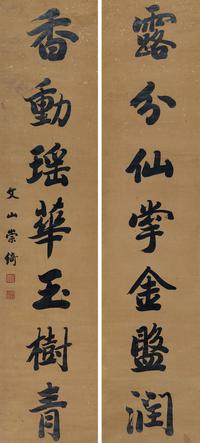 露分仙掌金盤潤
香動瑶華玉樹青
文山崇綺